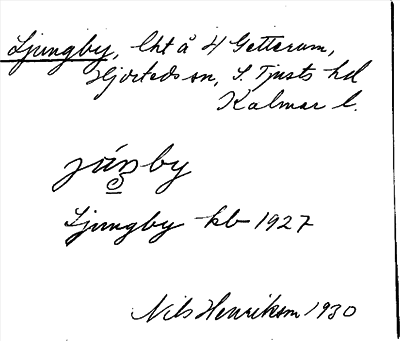 Ljungby, lht å 4 Getterum,
Hjorteds sn, S. Tjusts hd
Kalmar l.
júŋby
Ljungby kb 1927
Nils Henrikson 1930